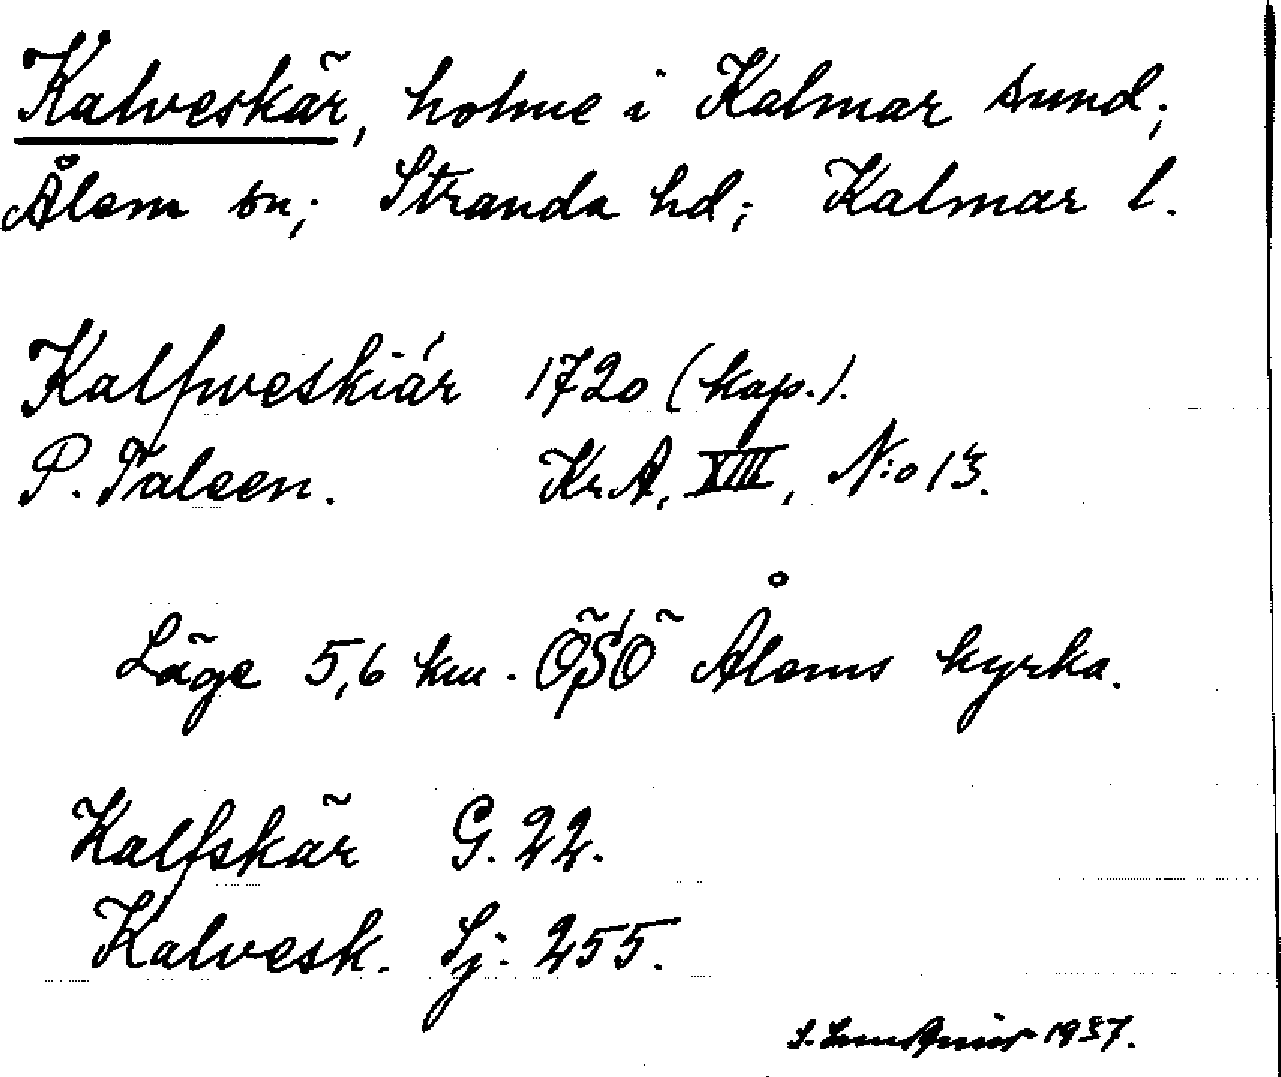 Kalveskär, holme i Kalmar sund;
Ålem sn; Stranda hd; Kalmar l.
Kalfweskiär 1720 (kap.).
P. Faleen. Kr.A. XIII, N:o 13.
Läge 5,6 km. ÖSÖ Ålems kyrka.
Kalfskär G. 22.
Kalvesk. Sj: 255.
1937.